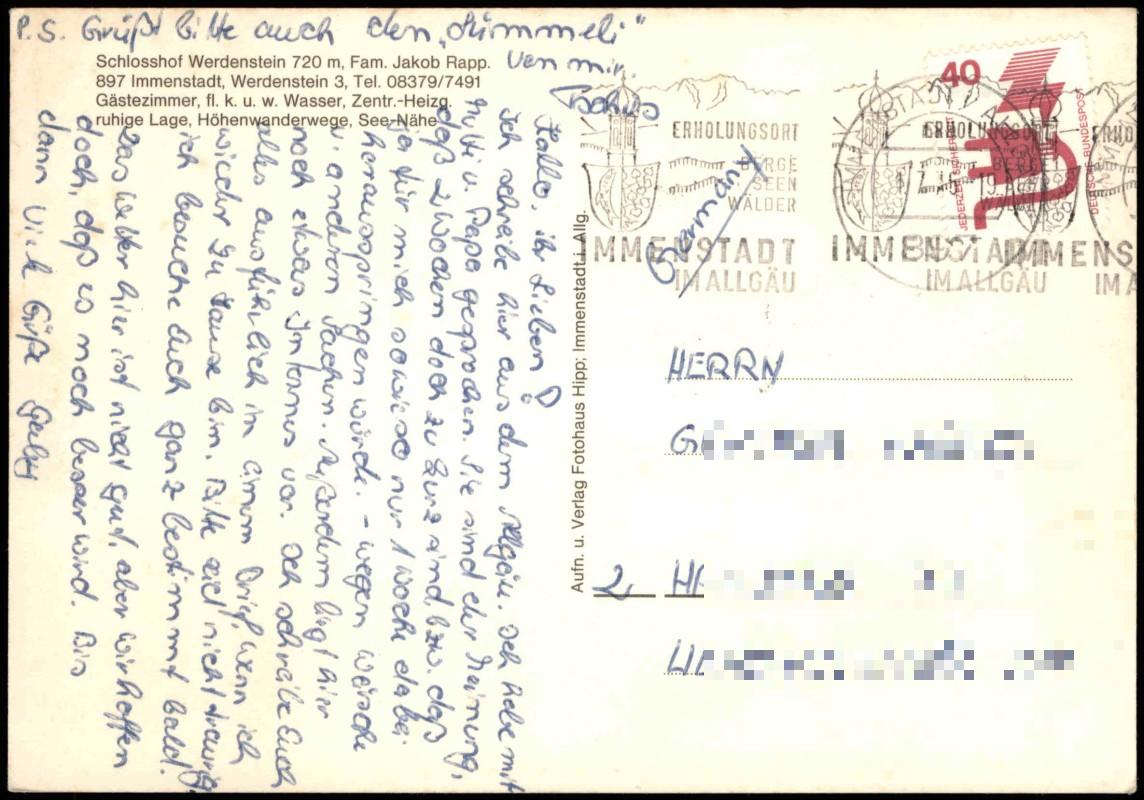 P.S. Grüßt bitte auch den „Lümmeli"
von mir.
Tschüs
Schlosshof Werdenstein 720 m, Fam. Jakob Rapp.
897 Immenstadt, Werdenstein 3, Tel. 08379/7491
Gästezimmer, fl. k. u. w. Wasser, Zentr.-Heizg.
ruhige Lage, Höhenwanderwege, See-Nähe
Hallo, ihr Lieben!
Ich schreibe hier aus dem Allgäu. Ich habe mit
Mutti u. Papa gesprochen. Sie sind der Meinung,
daß 2 Wochen doch zu kurz sind, bzw. daß
ja für mich sowieso nur 1 Woche dabei
herausspringen würde. – wegen Wäsche
u. anderen Sachen. Außerdem liegt hier
noch etwas vor. Ich schreibe Euch
alles ausführlich in einem Brief, wenn ich
wieder zu Hause bin. Bitte seid nicht traurig,
ich besuche Euch ganz bestimmt bald!
Das Wetter hier ist nicht gut, aber wir hoffen
doch, daß es noch besser wird. Bis
dann viele Grüße
Aufn. u. Verlag Fotohaus Hipp; Immenstadt i. Allg.
Germany
ERHOLUNGSORT
BERGE
SEEN
WÄLDER
IMMENSTADT
IM ALLGÄU
ERHOLUNGSORT
BERGE
SEEN
WÄLDER
IMMENSTADT
IM ALLGÄU
IMMENS
40
JEDERZEIT SICHERHEIT
DEUTSCHE BUNDESPOST
HERRN
2